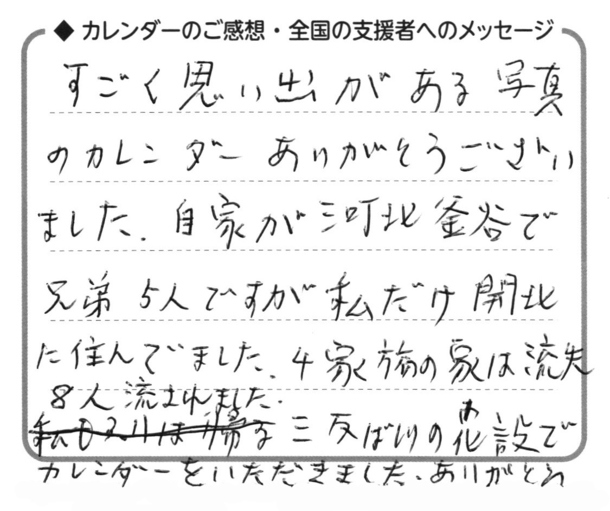 ◆ カレンダーのご感想・全国の支援者へのメッセージ
すごく思い出がある写真
のカレンダーありがとうござい
ました。自家が河北釜谷で
兄弟5人ですが私だけ開北
に住んでました。4家族の家は流失
8人流されました。
三反ばしりの
設で
カレンダーをいただきました。ありがとう